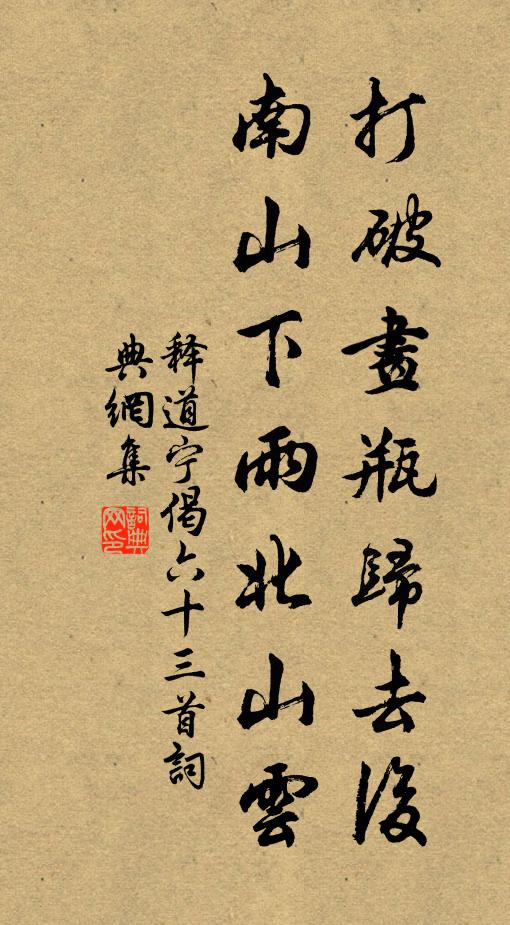 打破畫瓶歸去後
南山下雨北山雲
释道宁偈六十三首詞
典網集
詞典网印